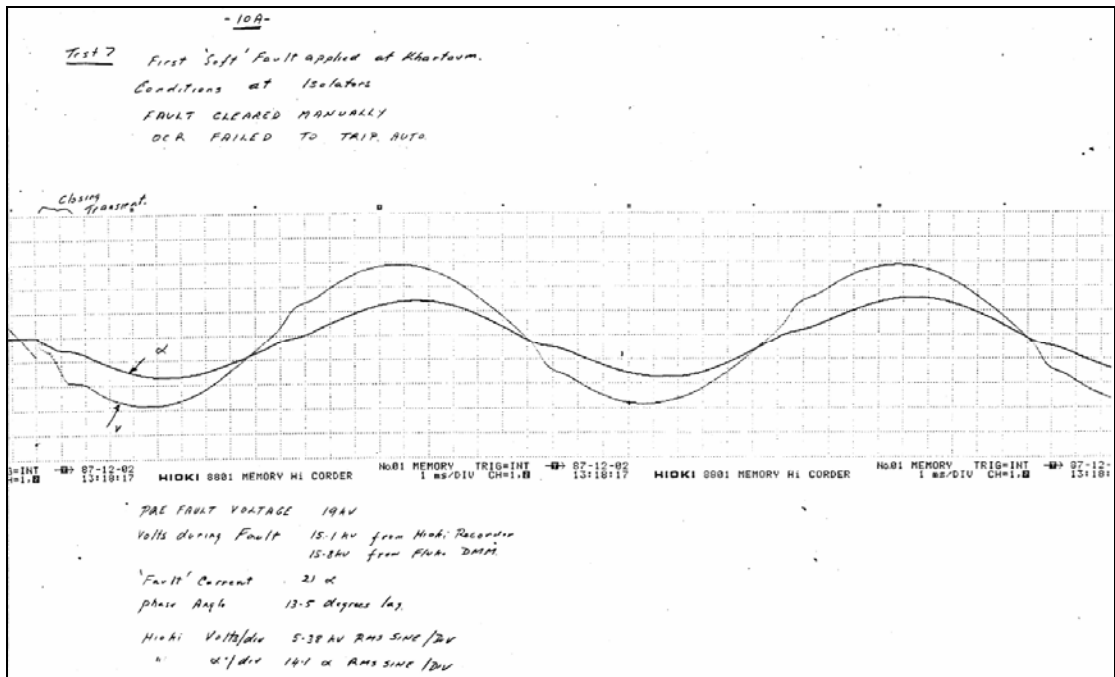 - 10A -
Test 7 First 'Soft' Fault applied at Khartoum.
Conditions at Isolators
FAULT CLEARED MANUALLY
OCR FAILED TO TRIP. AUTO.
Closing
Transient.
α
V
G=INT 87-12-02 No.01 MEMORY TRIG=INT 87-12-02 No.01 MEMORY TRIG=INT 87-12-
H=1,2 13:18:17 HIOKI 8801 MEMORY Hi CORDER 1 ms/DIV CH=1,2 13:18:17 HIOKI 8801 MEMORY Hi CORDER 1 ms/DIV CH=1,2 13:18:
PRE FAULT VOLTAGE 19kV
Volts during Fault 15.1 kV from Hioki Recorder
15.8kV from Fluke DMM.
'Fault' Current 21 α
phase Angle 13.5 degrees lag.
Hioki Volts/div 5.38 kV RMS SINE/DIV
" α/div 14.1 α RMS SINE/DIV